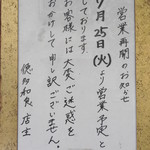 営業再開のお知らせ
7月25日(火)より営業予定と
しております。
お客様には大変ご迷惑を
おかけして申し訳ございません。
店主